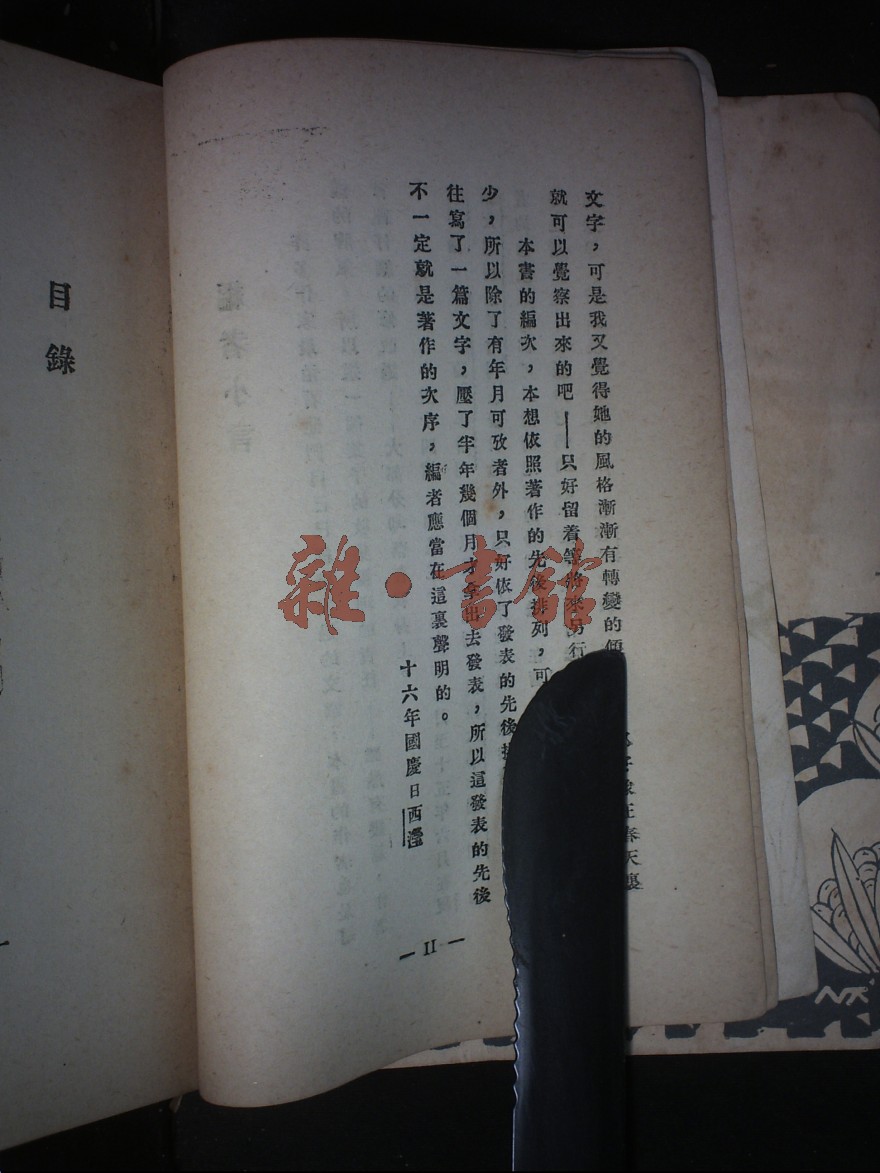 文字，可是我又覺得她的風格漸漸有轉變的傾
就可以覺察出來的吧——只好留着等將來另行
本書的編次，本想依照著作的先後排列，可
少，所以除了有年月可攷者外，只好依了發表的先後
往寫了一篇文字，壓了半年幾個月才拿出去發表，所以這發表的先後
不一定就是著作的次序，編者應當在這裏聲明的。
十六年國慶日西瀅
— II —
在春天裏
目錄
編者小言
雜·書館